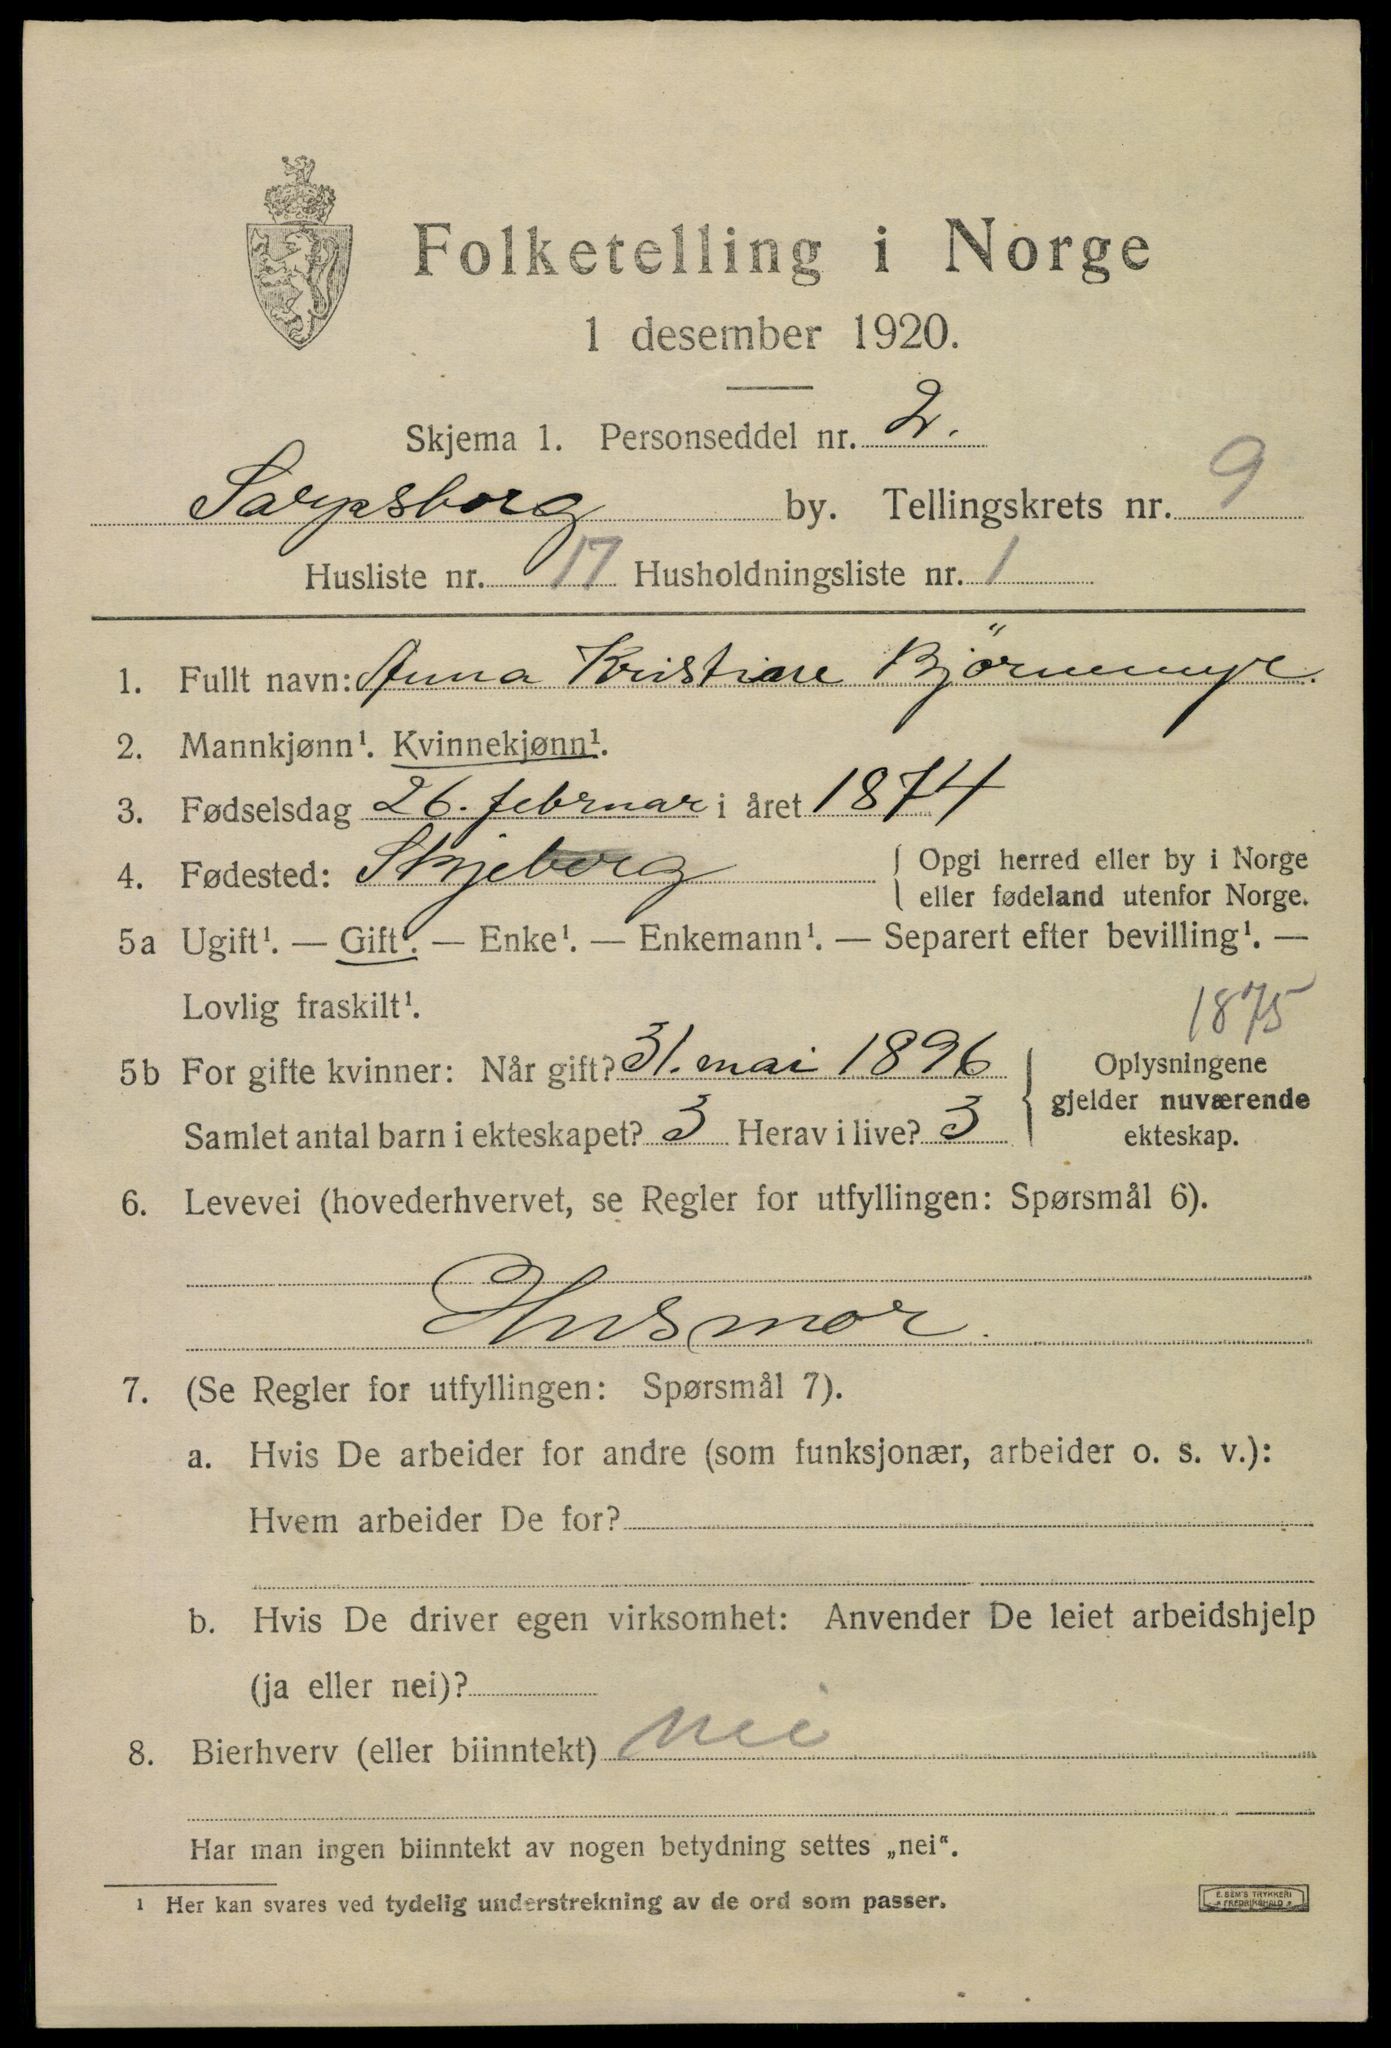 Folketelling i Norge
1 desember 1920.
Skjema 1. Personseddel nr. 2.
Sarpsborg by. Tellingskrets nr. 9
Husliste nr. 17 Husholdningsliste nr. 1
1. Fullt navn: Anna Kristine Björnemyr.
2. Mannkjønn¹. Kvinnekjønn¹.
3. Fødselsdag 26. februar i året 1874
4. Fødested: Skjeberg { Opgi herred eller by i Norge
eller fødeland utenfor Norge.
5a Ugift¹. — Gift¹. — Enke¹. — Enkemann¹. — Separert efter bevilling¹. —
Lovlig fraskilt¹.
1875
5b For gifte kvinner: Når gift? 31. mai 1896 { Oplysningene
gjelder nuværende
Samlet antal barn i ekteskapet? 3 Herav i live? 3 ekteskap.
6. Levevei (hovederhvervet, se Regler for utfyllingen: Spørsmål 6).
Husmor.
7. (Se Regler for utfyllingen: Spørsmål 7).
a. Hvis De arbeider for andre (som funksjonær, arbeider o. s. v.):
Hvem arbeider De for?
b. Hvis De driver egen virksomhet: Anvender De leiet arbeidshjelp
(ja eller nei)?
8. Bierhverv (eller biinntekt) nei
Har man ingen biinntekt av nogen betydning settes „nei“.
¹ Her kan svares ved tydelig understrekning av de ord som passer.
E. SEM'S TRYKKERI
FREDRIKSHALD